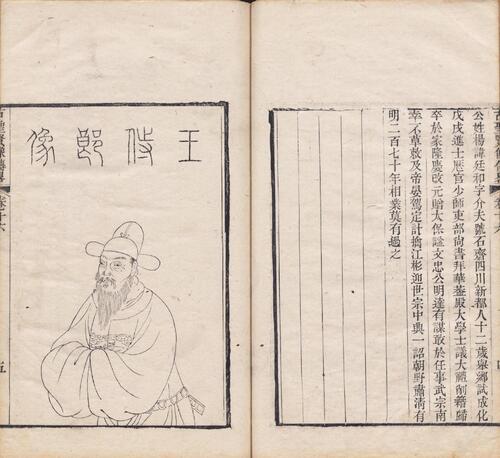 公姓楊諱廷和字介夫號石齋四川新都人十二歲舉鄉試成化
戊戌進士歷官少師吏部尚書拜華葢殿大學士議大禮削籍歸
卒於家隆慶改元贈太保諡文忠公明達有謀敢於任事武宗南
幸不草敕及帝晏駕定計擒江彬迎世宗中興一詔朝野肅清有
明二百七十年相業莫有過之
王侍郎像
卷十六
五